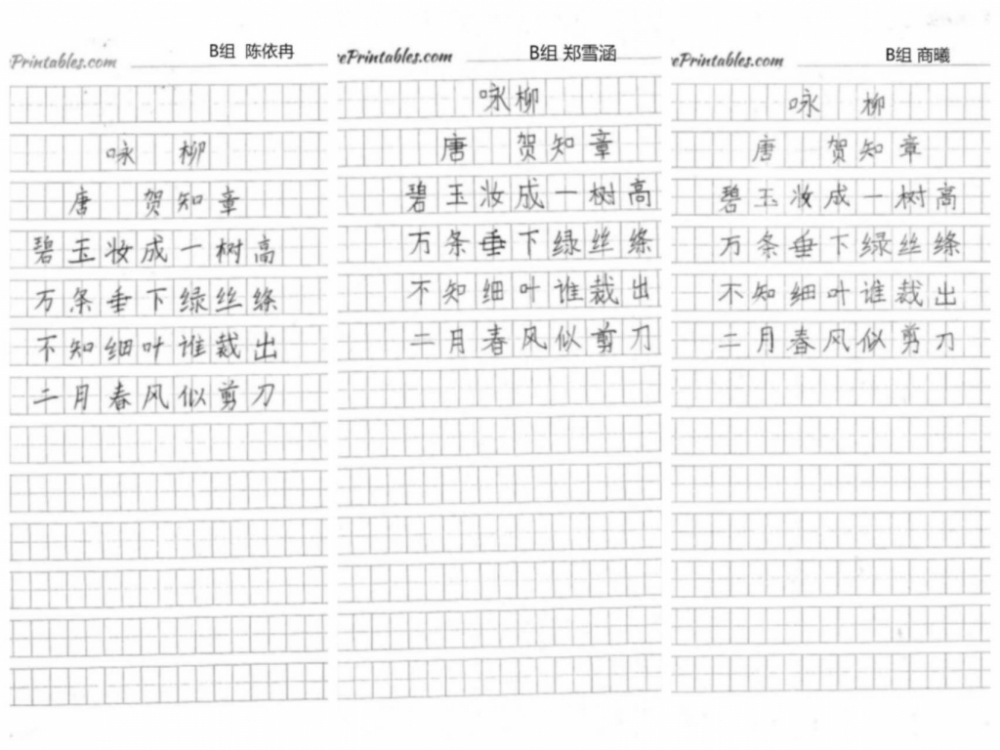 Printables.com
B组 陈依冉
咏 柳
唐 贺知章
碧玉妆成一树高
万条垂下绿丝绦
不知细叶谁裁出
二月春风似剪刀
rePrintables.com
B组 郑雪涵
咏柳
唐 贺知章
碧玉妆成一树高
万条垂下绿丝绦
不知细叶谁裁出
二月春风似剪刀
rePrintables.com
B组 商曦
咏 柳
唐 贺知章
碧玉妆成一树高
万条垂下绿丝绦
不知细叶谁裁出
二月春风似剪刀